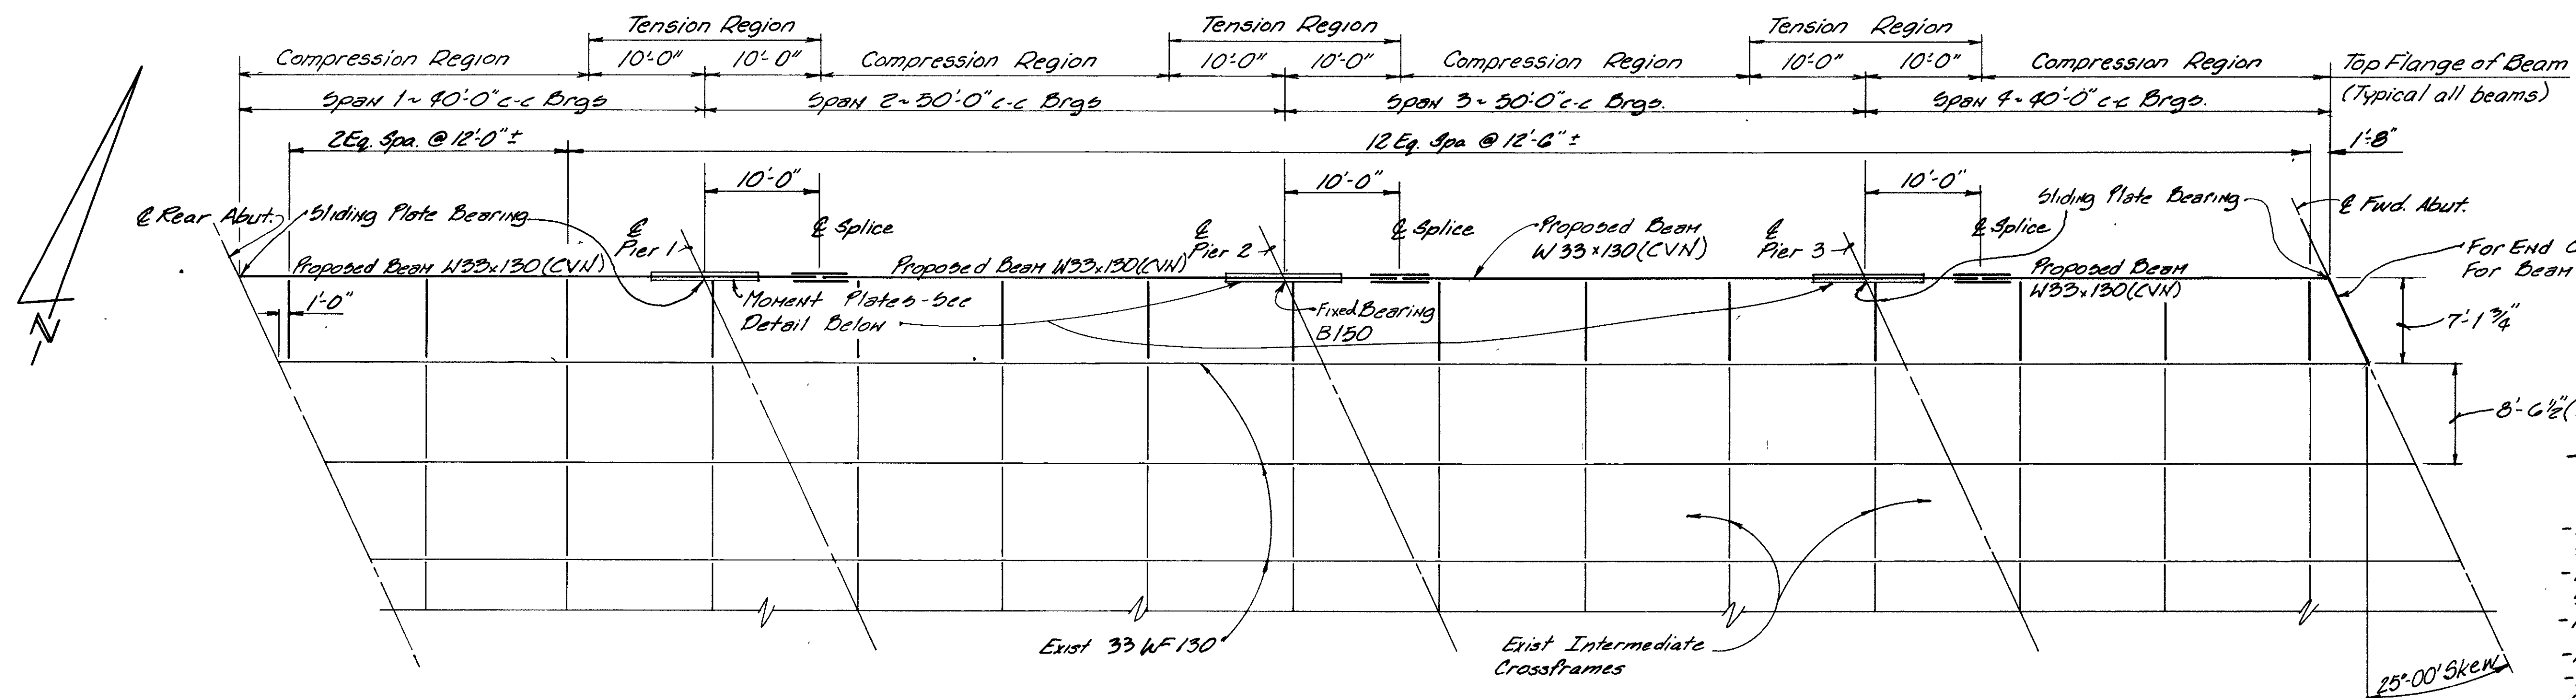 Tension Region
Tension Region
Tension Region
Compression Region
10'-0"
10'-0"
Compression Region
10'-0"
10'-0"
Compression Region
10'-0"
10'-0"
Compression Region
Top Flange of Beam
(Typical all beams)
Span 1 ~ 40'-0" c-c Brgs
Span 2 ~ 50'-0" c-c Brgs
Span 3 ~ 50'-0" c-c Brgs.
Span 4 ~ 40'-0" c-c Brgs.
2 Eq. Spa. @ 12'-0" ±
12 Eq. Spa @ 12'-6" ±
1'-8"
10'-0"
10'-0"
10'-0"
℄ Rear Abut.
Sliding Plate Bearing
℄
Pier 1
℄ Splice
℄
Pier 2
℄ Splice
Proposed Beam
W33×130 (CVN)
℄
Pier 3
℄ Splice
Sliding Plate Bearing
℄ Fwd. Abut.
For End
For Beam
Proposed Beam W33×130 (CVN)
Proposed Beam W33×130 (CVN)
Proposed Beam
W33×130 (CVN)
1'-0"
Moment Plates - See
Detail Below
Fixed Bearing
B150
7'-1 3/4"
8'-6 1/2"(
N
Exist 33 WF 130
Exist Intermediate
Crossframes
25°-00' Skew